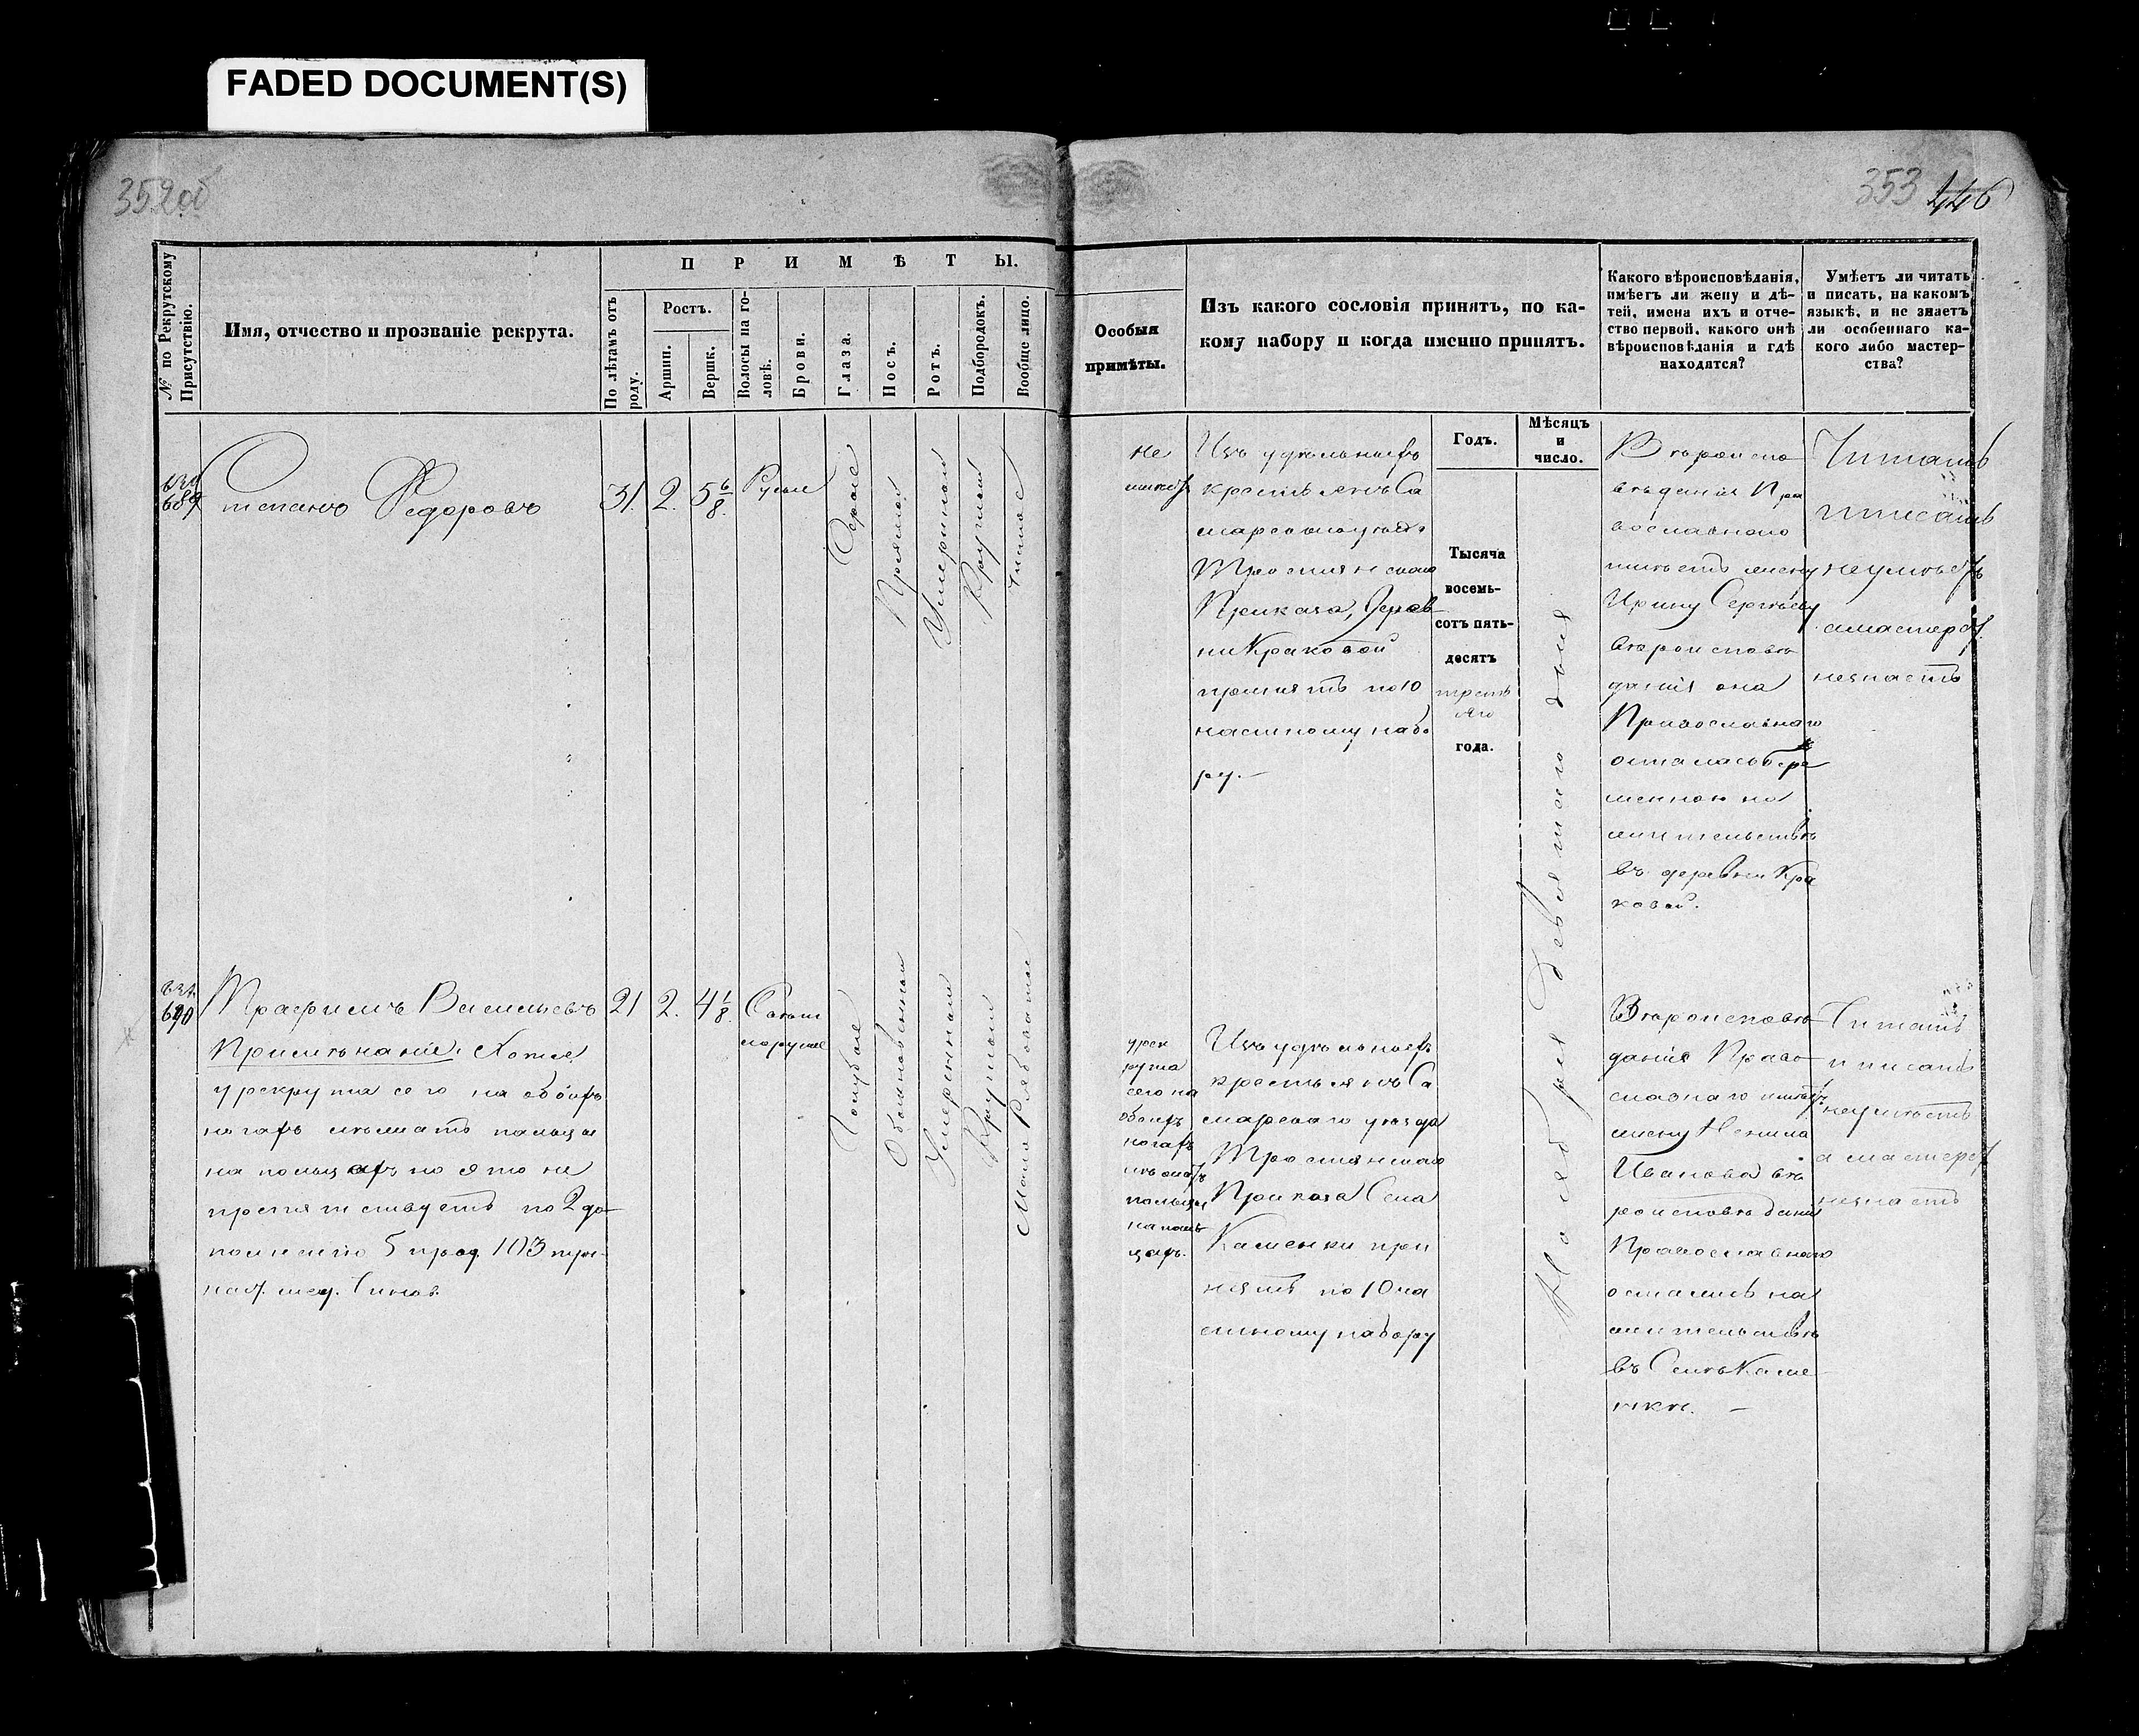 FADED DOCUMENT(S)
352об
353 446
№ по Рекрутскому Присутствію.
Имя, отчество и прозваніе рекрута.
ПРИМѢТЫ.
По лѣтамъ отъ роду.
Ростъ.
Аршин.
Вершк.
Волосы на головѣ.
Брови.
Глаза.
Носъ.
Ротъ.
Подбородокъ.
Вообще лицо.
Особыя
примѣты.
Изъ какого сословія принятъ, по ка-
кому набору и когда именно принятъ.
Годъ.
Мѣсяцъ
и
число.
Какого вѣроисповѣданія,
имѣетъ ли жену и дѣ-
тей, имена ихъ и отче-
ство первой, какого онѣ
вѣроисповѣданія и гдѣ
находятся?
Умѣетъ ли читать
и писать, на какомъ
языкѣ, и не знаетъ
ли особеннаго ка-
кого либо мастер-
ства?
689
Степанъ Федоровъ
31.
2.
5 6/8.
Русые
Серые
Прямой
Умеренной
Круглой
Чистое
не
имѣет
Изъ удельныхъ
крестьянъ Са
марскаго уезда
Тростянскаго
Приказа, Дерев
ни Краковой
принятъ по 10
частному набо
ру.—
Тысяча
восемь-
сотъ пять-
десятъ
третьяго
года.
Ноября девятаго дня
Вѣроиспо
вѣданія Пра
вославного
имѣетъ жену
Ирину Сергѣеву
вѣроисповѣ
данія она
Православнаго
осталась бере
менною на
жительствѣ
въ деревни Кра
ковой.
Читать
писать
неумѣетъ
а мастерст.
незнаетъ
690
Трафимъ Васильевъ
21
2.
4 1/8.
Светло
русые
Голубые
Обыкновенной
Умеренной
Круглой
Мало Рябоватое
Примѣчаніе. Хотя
у рекрута сего на обоихъ
ногахъ лѣжатъ пальцы
на пальцахъ но это не
препятствуетъ по 2 до-
полненію 5 прод. 103 при
наст. мед. Чинов.
у рек
рута
сего на
обоихъ
ногахъ
лѣжатъ
пальцы
на паль
цахъ.
Изъ удѣльныхъ
крестьянъ Са
марскаго уезда
Тростянскаго
Приказа Села
Каменки при
нятъ по 10 ча
стному набору
Вѣроисповѣ
данія Право
славнаго имѣетъ
жену Ненила
Иванова вѣ
роисповѣданія
Православнаго
осталась на
жительствѣ
въ Селѣ Каме
нкѣ. —
Читать
и писать
неумѣетъ
а мастерст
незнаетъ